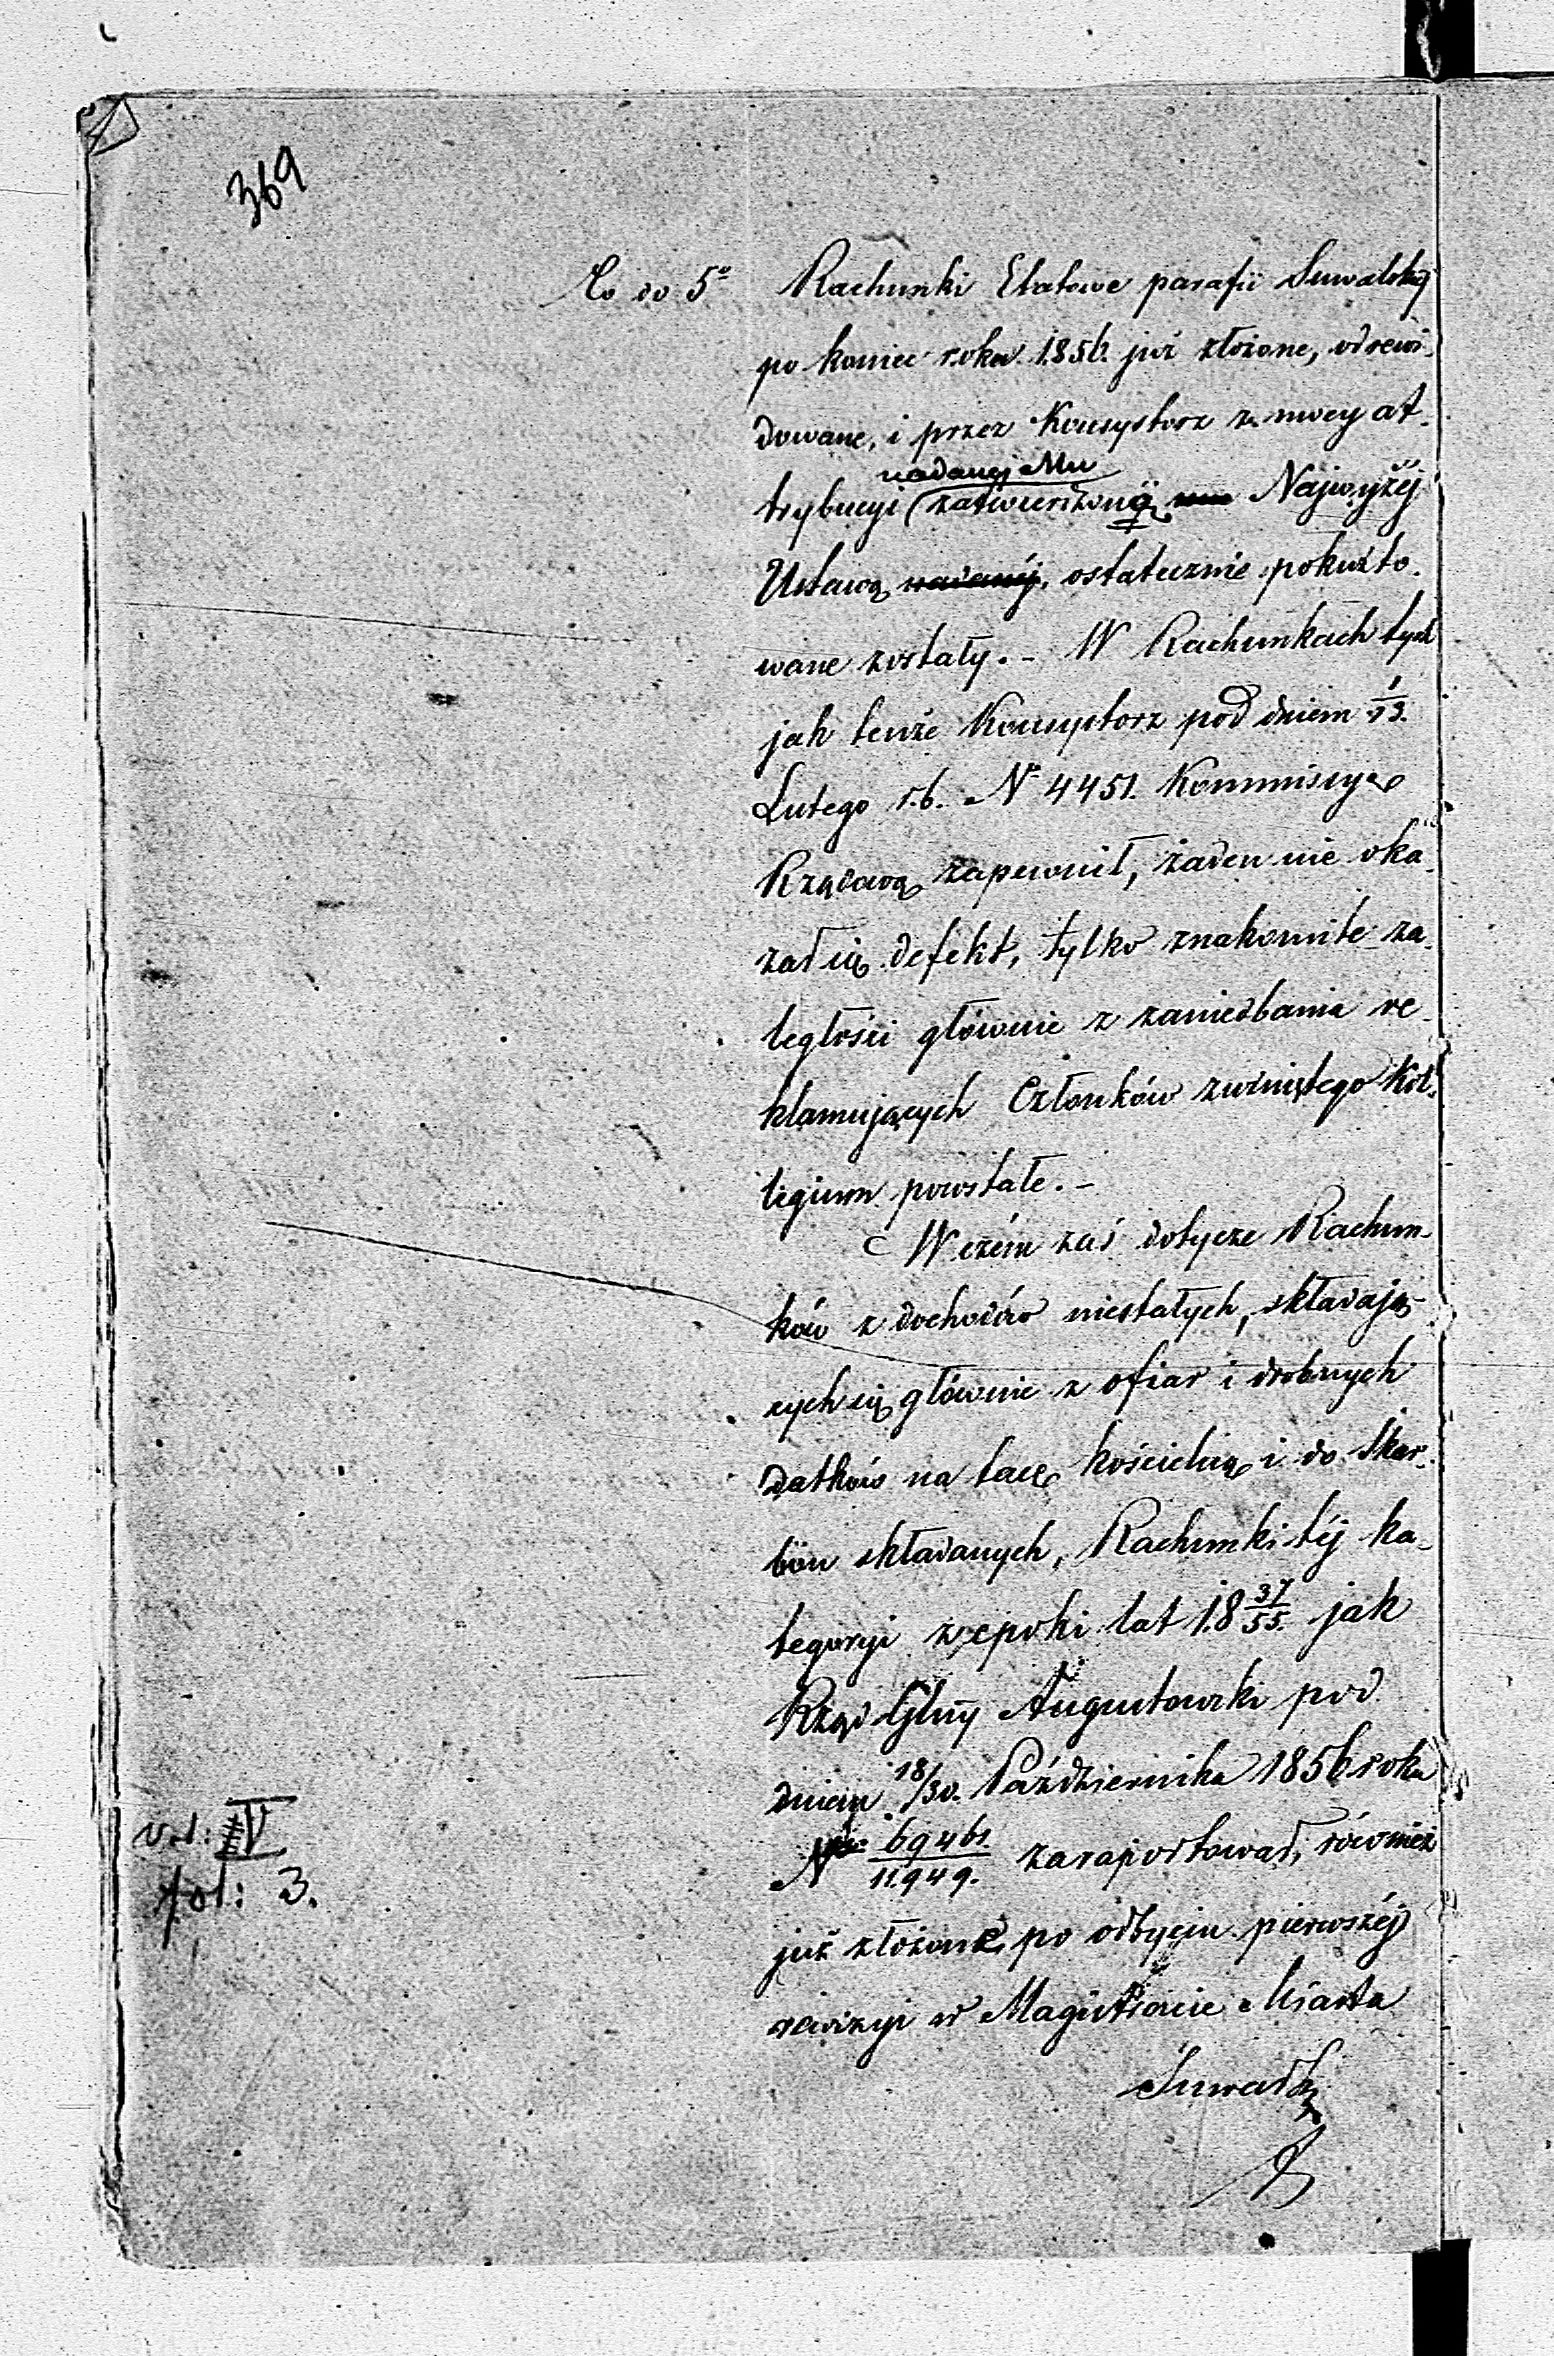 369
Co do 5º Rachunki Etatowe parafii Suwalskiéj
po koniec roku 1856. już złożone, odrewi-
dowane, i przez Konsystorz z mocy at-
nadanéj Mu
trybucyi zatwierdzoną Najwyżéj
Ustawą nadanéj, ostatecznie pokwito-
wane zostały. - W Rachunkach tych
jak tenże Konsystorz pod dniem 1/13.
Lutego r.b. Nº 4451. Kommissyę
Rządową zapewnił, żaden nie oka-
zał się defekt, tylko znakomite za-
ległości głównie z zaniedbania re-
klamujących Członków zwiniętego Kol-
legium powstałe. -
W czém zaś dotycze Rachun-
ków z dochodów niestałych, składają-
cych się głównie z ofiar i drobnych
datków na tacę kościelną i do Skar-
bon składanych, Rachunki téj ka-
tegoryi z epoki lat 18 37/55. jak
Rząd Glny Augustowski pod
dniem 18/30. Października 1856 roku
vol: IV
N 69461/11949. zaraportował, również
fol: 3.
już złożone, po odbyciu pierwszéj
rewizyi w Magistracie Miasta
Suwałk